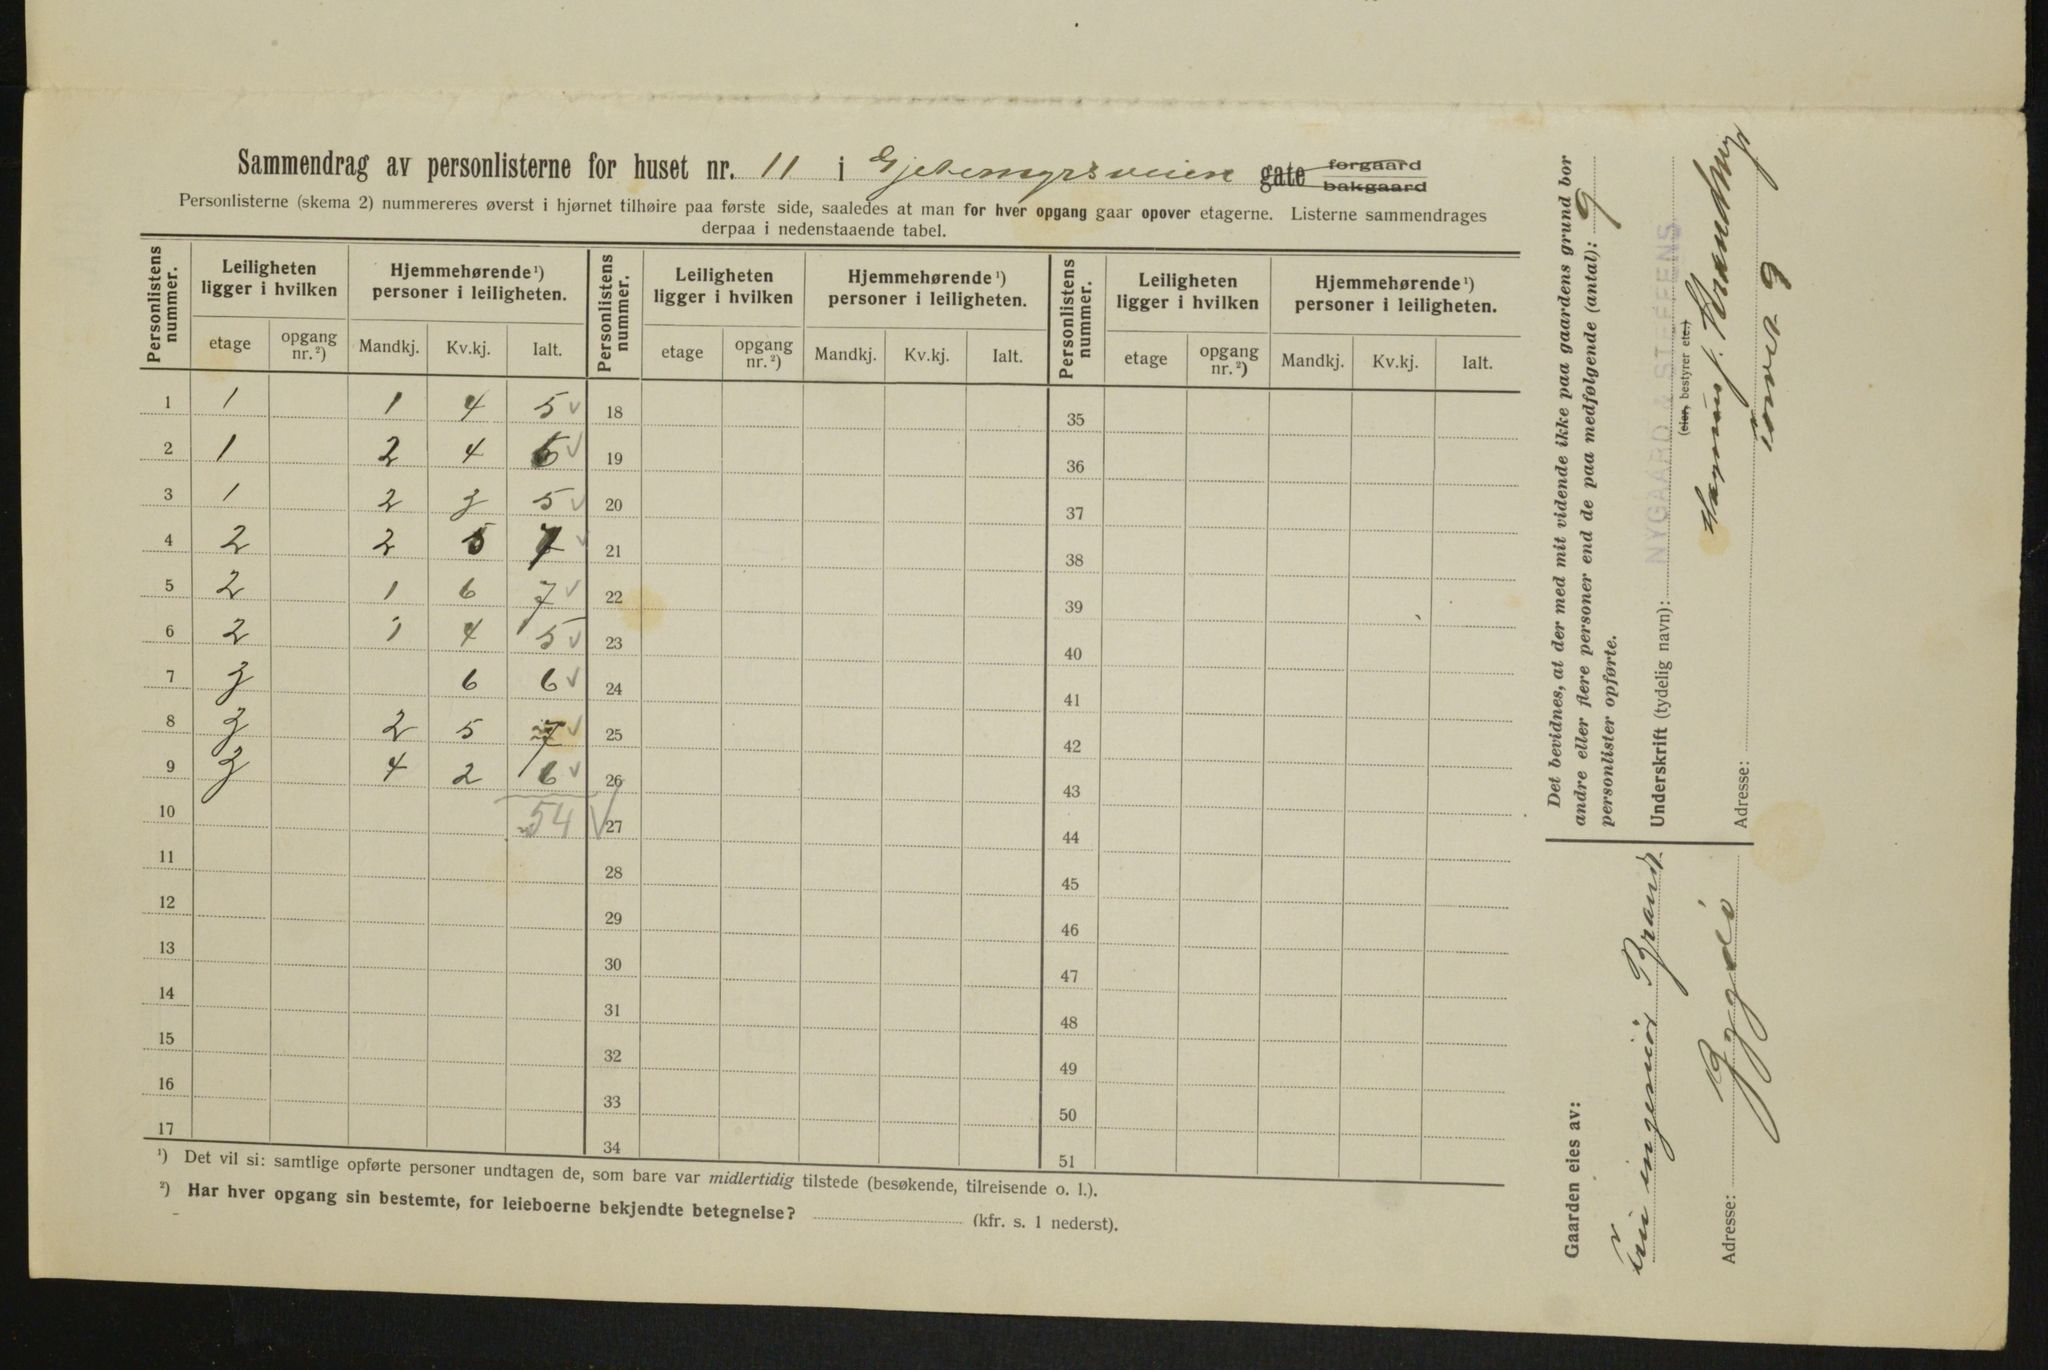 Sammendrag av personlisterne for huset nr. 11 i Gjetemyrsveien gate forgaard bakgaard
Personlisterne (skema 2) nummereres øverst i hjørnet tilhøire paa første side, saaledes at man for hver opgang gaar opover etagerne. Listerne sammendrages
derpaa i nedenstaaende tabel.
Personlistens nummer. Leiligheten ligger i hvilken Hjemmehørende ¹) personer i leiligheten. Personlistens nummer. Leiligheten ligger i hvilken Hjemmehørende ¹) personer i leiligheten. Personlistens nummer. Leiligheten ligger i hvilken Hjemmehørende ¹) personer i leiligheten.
etage opgang nr. ²) Mandkj. Kv.kj. Ialt. etage opgang nr. ²) Mandkj. Kv.kj. Ialt. etage opgang nr. ²) Mandkj. Kv.kj. Ialt.
1 1 1 4 5 ✓ 18 35
2 1 2 4 6 ✓ 19 36
3 1 2 3 5 ✓ 20 37
4 2 2 5 7 ✓ 21 38
5 2 1 6 7 ✓ 22 39
6 2 1 4 5 ✓ 23 40
7 3 6 6 ✓ 24 41
8 3 2 5 7 ✓ 25 42
9 3 4 2 6 ✓ 26 43
10 54 ✓ 27 44
11 28 45
12 29 46
13 30 47
14 31 48
15 32 49
16 33 50
17 34 51
¹) Det vil si: samtlige opførte personer undtagen de, som bare var midlertidig tilstede (besøkende, tilreisende o. l.).
²) Har hver opgang sin bestemte, for leieboerne bekjendte betegnelse? (kfr. s. 1 nederst).
Det bevidnes, at der med mit vidende ikke paa gaardens grund bor
andre eller flere personer end de paa medfølgende (antal): 9
personlister opførte.
NYGAARD & STEFFENS
Underskrift (tydelig navn):
(eier, bestyrer etc.)
Adresse:
Gaarden eies av:
ingeniör Brandt
Adresse: Bygdö